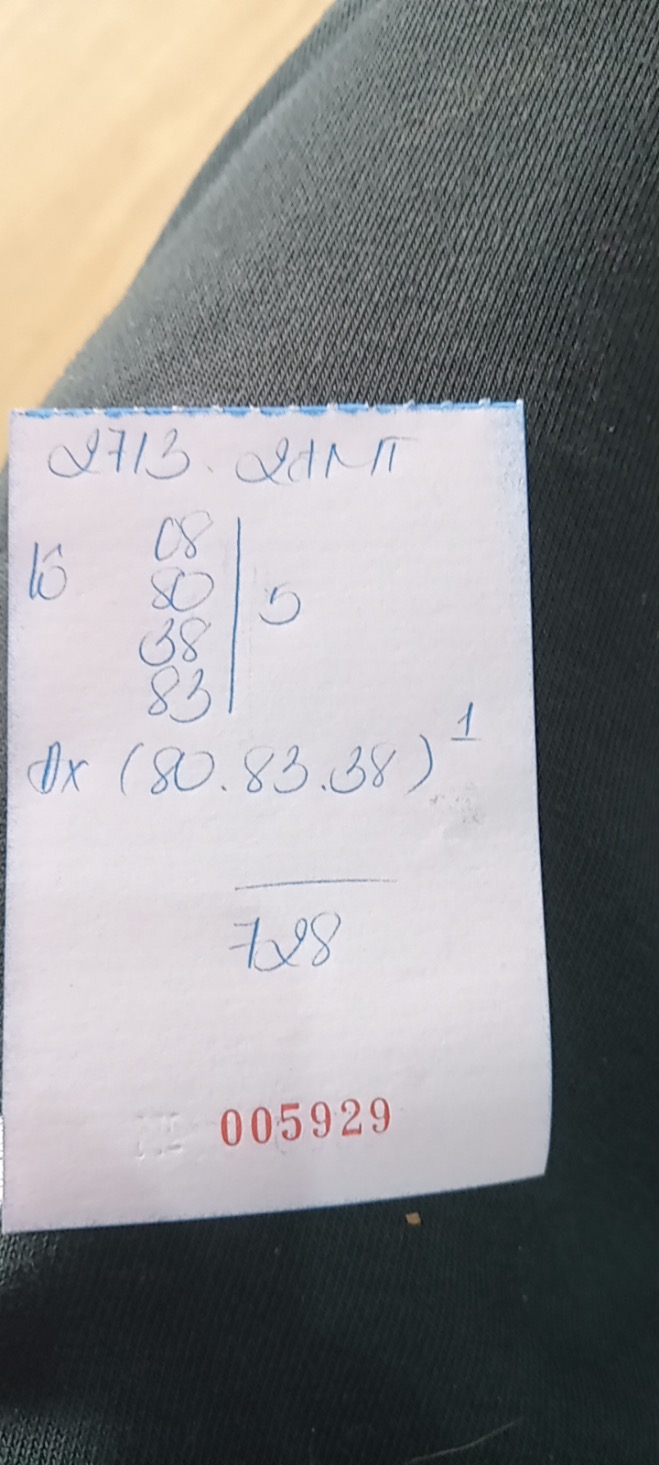 27/3. 2đMT
lô
08
80
38
83
5
đx (80.83.38) 1
728
005929